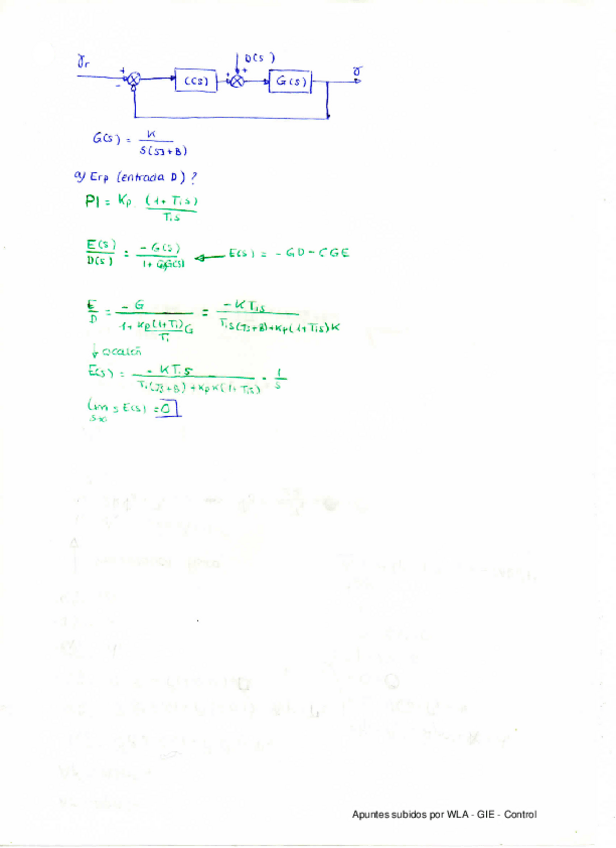 γr + - C(s) + + D(s) G(s) γ
G(s) = K / S(SJ+B)
a) Erp (entrada D) ?
PI = Kp (1+Tis) / Tis
E(s)/D(s) = -G(s) / 1+CG(s) ← E(s) = -GD-CGE
E/D = -G / 1+ Kp(1+Ti)/Ti G = -KTis / Tis(Js+B)+Kp(1+Tis)K
↓ escalón
E(s) = -KTis / Ti(JS+B)+KpK(1+Tis) · 1/s
lim s E(s) = 0
Apuntes subidos por WLA - GIE - Control